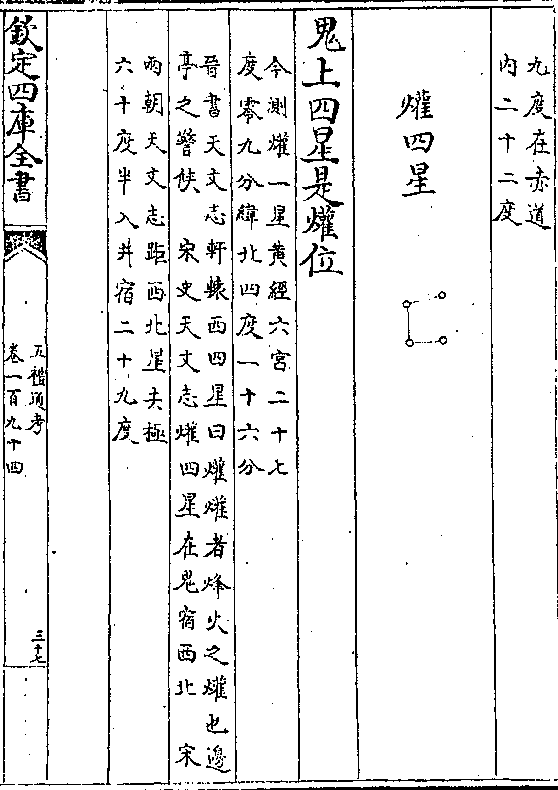 九度在赤道
内二十二度
爟四星
鬼上四星是爟位
今測爟一星黄經六宫二十七
度零九分緯北四度一十六分
晉書天文志軒轅西四星曰爟爟者烽火之爟也邊
亭之警候　宋史天文志爟四星在鬼宿西北　宋
兩朝天文志距西北星去極
六十度半入井宿二十九度
欽定四庫全書
五禮通考
卷一百九十四
三十七